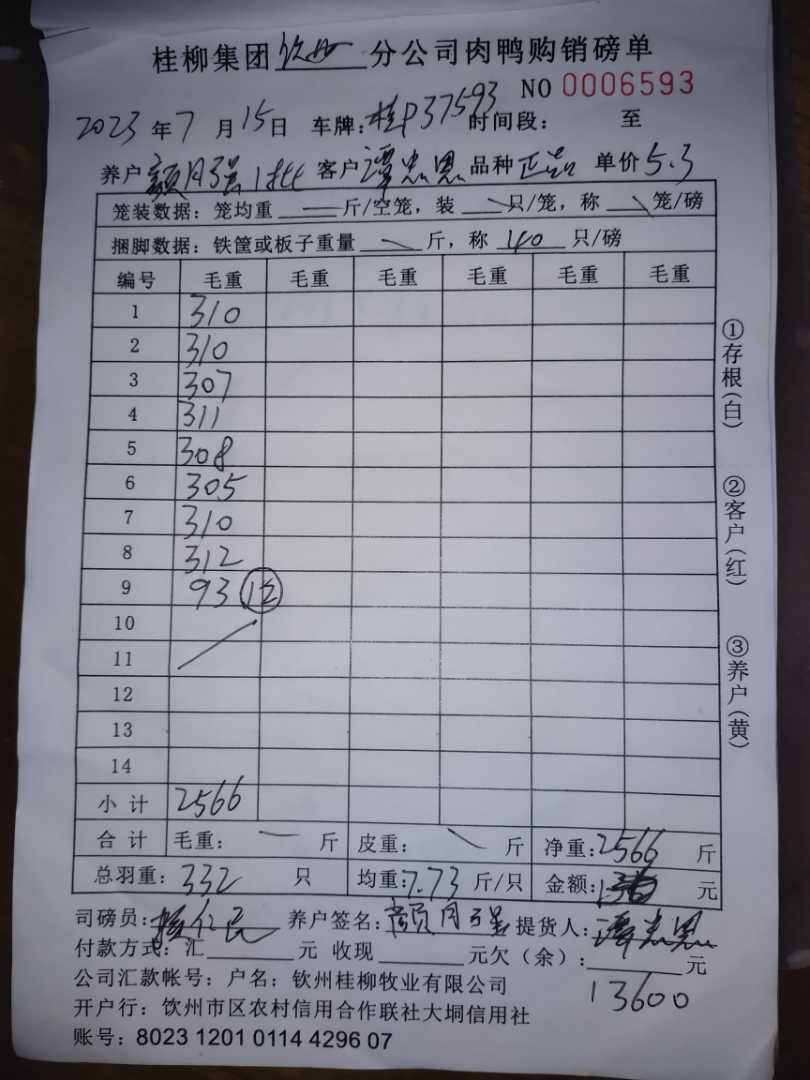 桂柳集团钦州分公司肉鸭购销磅单
NO 0006593
2023年7月15日 车牌:桂P37593 时间段: 至
养户 颜月强1批 客户 谭忠恩 品种 正品 单价5.3
笼装数据：笼均重 — 斤/空笼，装 \ 只/笼，称 \ 笼/磅
捆脚数据：铁筐或板子重量 \ 斤，称 40 只/磅
编号 毛重 毛重 毛重 毛重 毛重 毛重
1 310
2 310
3 307
4 311
5 308
6 305
7 310
8 312
9 93
10
11
12
13
14
小计 2566
合计 毛重: — 斤 皮重: \ 斤 净重:2566 斤
总羽重: 332 只 均重:7.73 斤/只 金额: 元
司磅员: 养户签名:颜月强 提货人:谭忠恩
付款方式：汇 元 收现 元欠（余）: 元
13600
公司汇款帐号：户名：钦州桂柳牧业有限公司
开户行：饮州市区农村信用合作联社大垌信用社
账号：8023 1201 0114 4296 07
①存根(白)
②客户(红)
③养户(黄)